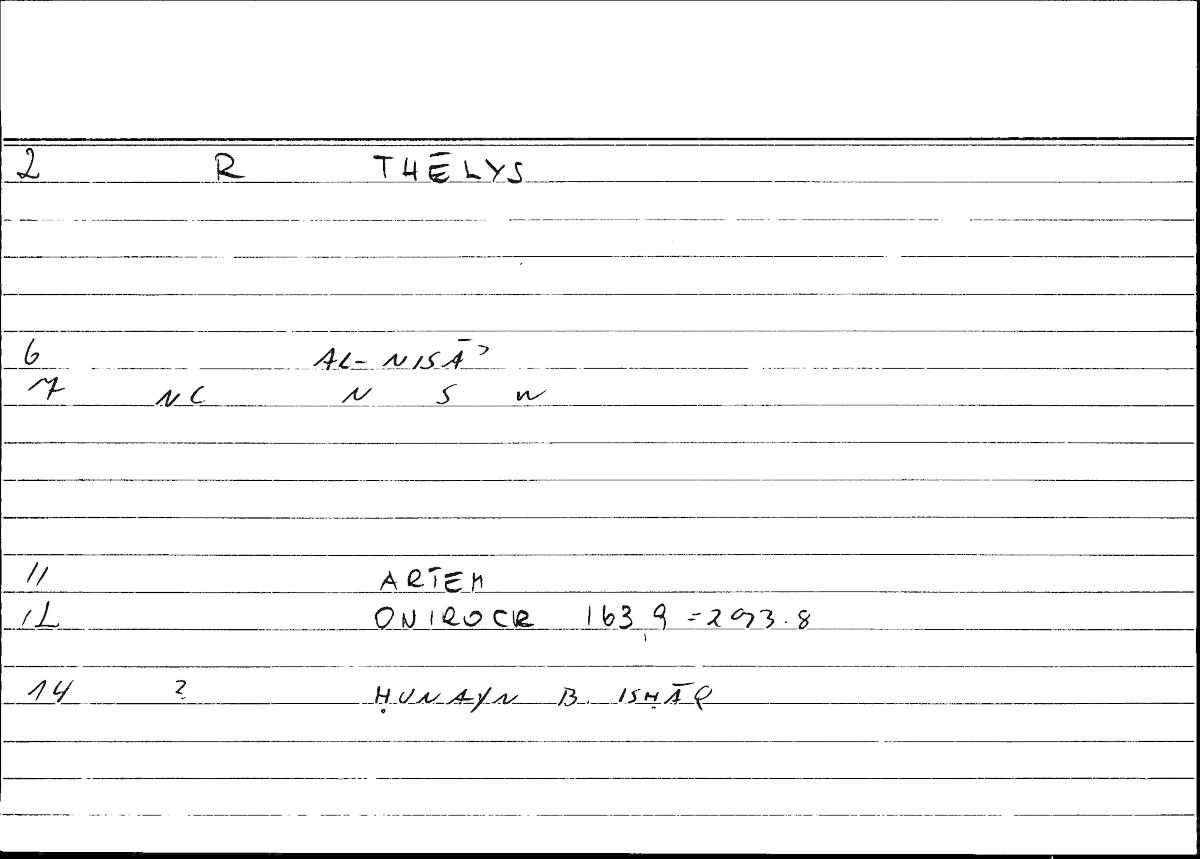 2 R THĒLYS
6 AL-NISĀʾ
7 NC N S W
11 ARTEM
12 ONIROCR 163,9 = 293.8
14 ? ḤUNAYN B. ISḤĀQ